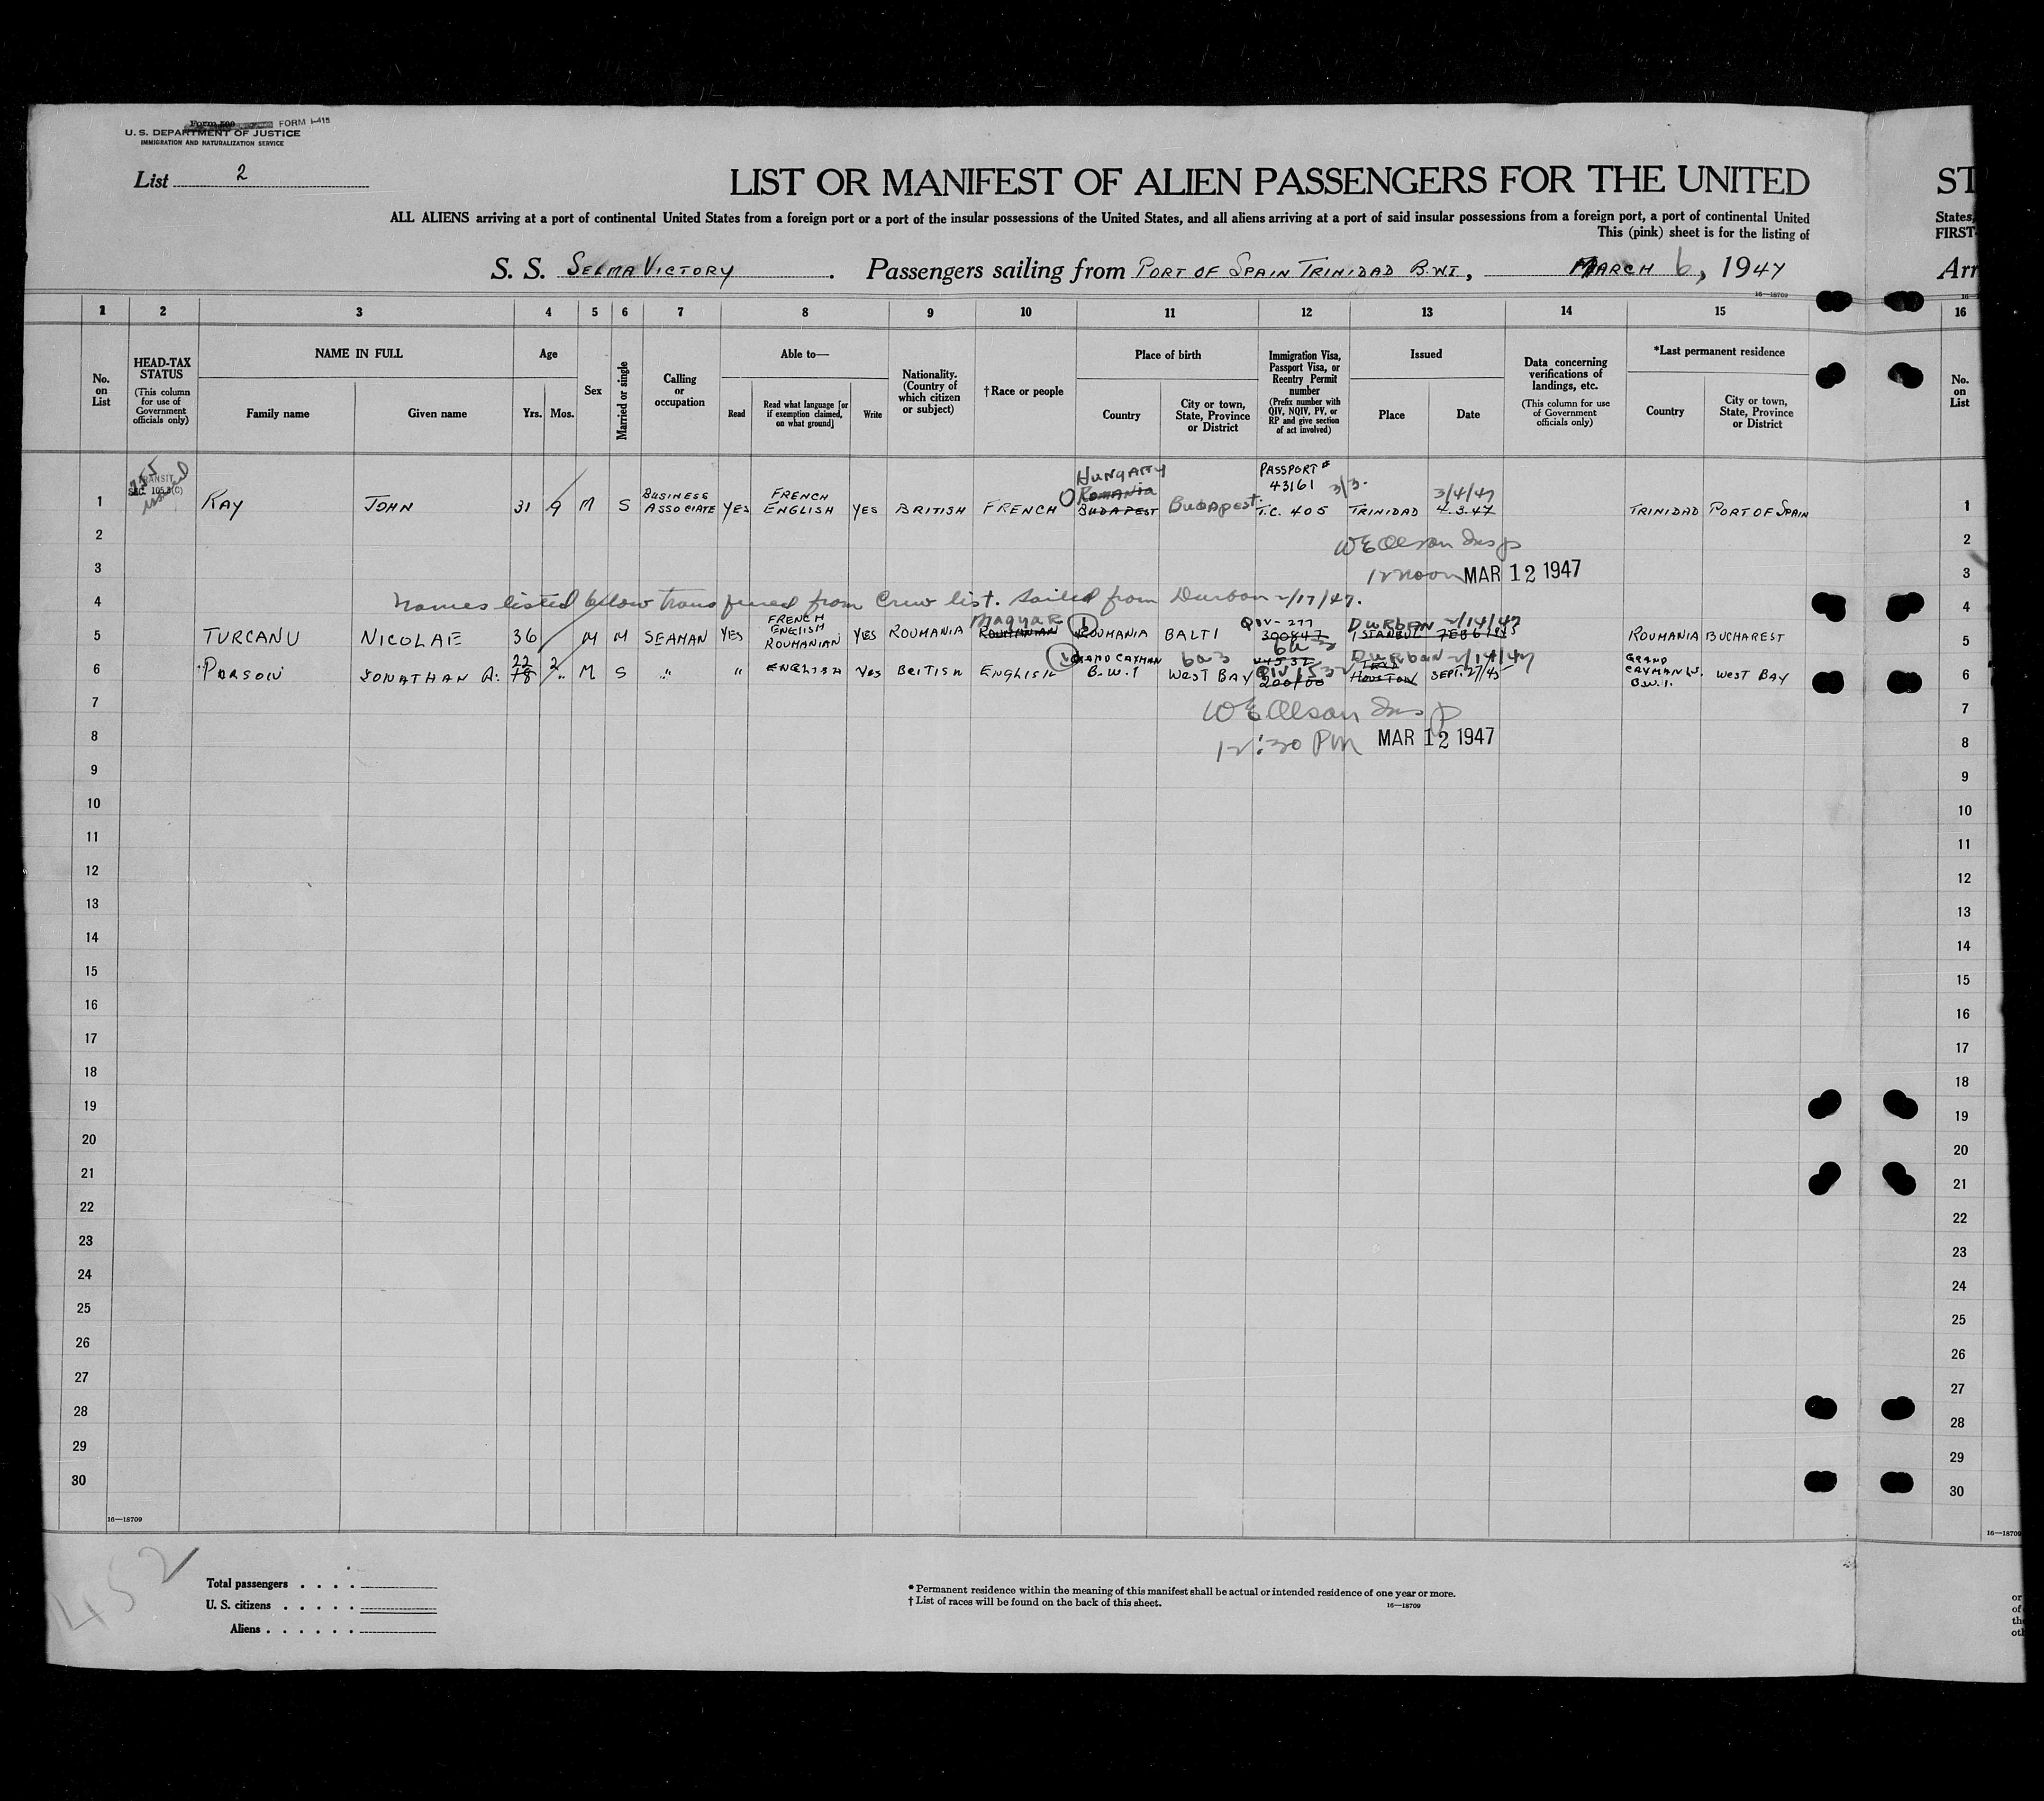 FORM I-415
U. S. DEPARTMENT OF JUSTICE
IMMIGRATION AND NATURALIZATION SERVICE
List 2
LIST OR MANIFEST OF ALIEN PASSENGERS FOR THE UNITED
ST
ALL ALIENS arriving at a port of continental United States from a foreign port or a port of the insular possessions of the United States, and all aliens arriving at a port of said insular possessions from a foreign port, a port of continental United
States,
This (pink) sheet is for the listing of
FIRST-
S. S. SELMA VICTORY . Passengers sailing from PORT OF SPAIN TRINIDAD B.W.I, MARCH 6, 1947
Arr
16—18709
1 2 3 4 5 6 7 8 9 10 11 12 13 14 15 16
No. on List
HEAD-TAX STATUS (This column for use of Government officials only)
NAME IN FULL
Family name
Given name
Age
Yrs. Mos.
Sex
Married or single
Calling or occupation
Able to—
Read
Read what language [or if exemption claimed, on what ground]
Write
Nationality. (Country of which citizen or subject)
†Race or people
Place of birth
Country
City or town, State, Province or District
Immigration Visa, Passport Visa, or Reentry Permit number (Prefix number with QIV, NQIV, PV, or RP and give section of act involved)
Issued
Place
Date
Data concerning verifications of landings, etc. (This column for use of Government officials only)
*Last permanent residence
Country
City or town, State, Province or District
No. on List
TRANSIT
SEC. 105.3(C)
HUNGARY
PASSPORT #
43161 3/3.
3/4/47
1 KAY JOHN 31 9 M S BUSINESS ASSOCIATE YES FRENCH ENGLISH YES BRITISH FRENCH ROMANIA BUDAPEST Budapest T.C. 405 TRINIDAD 4.3.47 TRINIDAD PORT OF SPAIN 1
2 W E Olson Insp 2
3 12 noon MAR 12 1947 3
4 Names listed below transferred from Crew list. Sailed from Durban 2/17/47. 4
Magyar QIV-277 DURBAN 2/14/47
5 TURCANU NICOLAE 36 M M SEAMAN YES FRENCH ENGLISH ROUMANIAN YES ROUMANIA ROUMANIAN ROUMANIA BALTI 300847 ISTANBUL FEB 6 ROUMANIA BUCHAREST 5
6a3 Durban 2/14/47
6 PARSON JONATHAN A. 22 2 M S " " ENGLISH Yes BRITISH ENGLISH GRAND CAYMAN B.W.I WEST BAY 200100 HOUSTON SEPT. 27/45 GRAND CAYMAN IS. B.W.I. WEST BAY 6
7 W E Olson Insp 7
8 12:30 PM MAR 12 1947 8
9 9
10 10
11 11
12 12
13 13
14 14
15 15
16 16
17 17
18 18
19 19
20 20
21 21
22 22
23 23
24 24
25 25
26 26
27 27
28 28
29 29
30 30
16—18709
16—18709
452
Total passengers . . . .
U. S. citizens . . . . .
Aliens . . . . . .
* Permanent residence within the meaning of this manifest shall be actual or intended residence of one year or more.
† List of races will be found on the back of this sheet.
16—18709